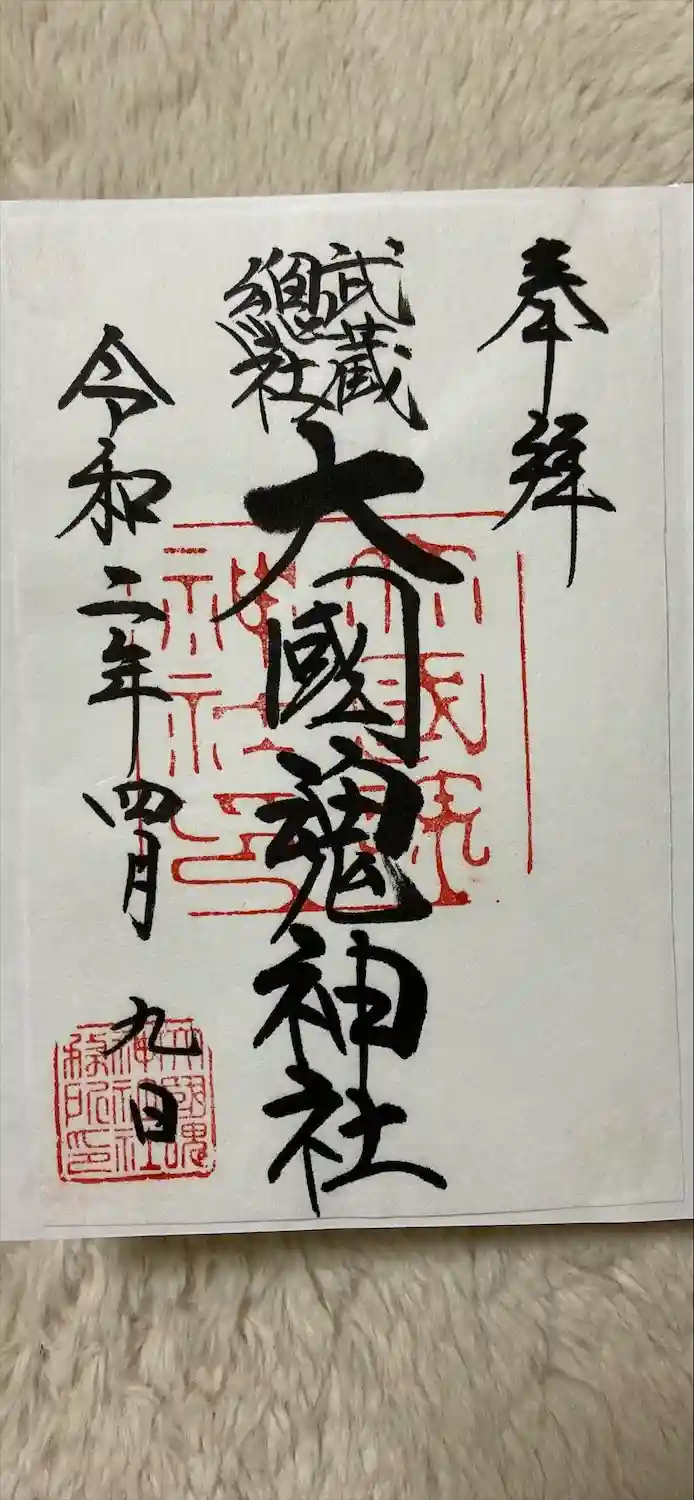 奉拝
武蔵
總社
大國魂神社
令和二年四月九日
大國魂
神社印
大國魂
神社
務所印